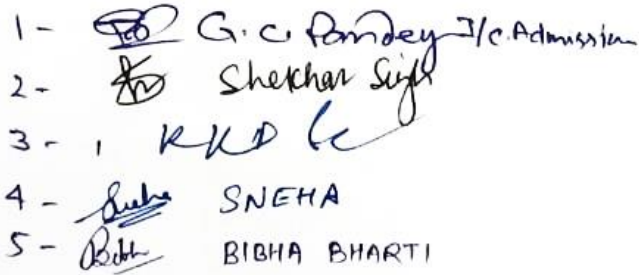 1- G.C. Pandey I/c. Admission
2- Shekhar Singh
3- KKD
4- Sneha SNEHA
5- Bibha BIBHA BHARTI